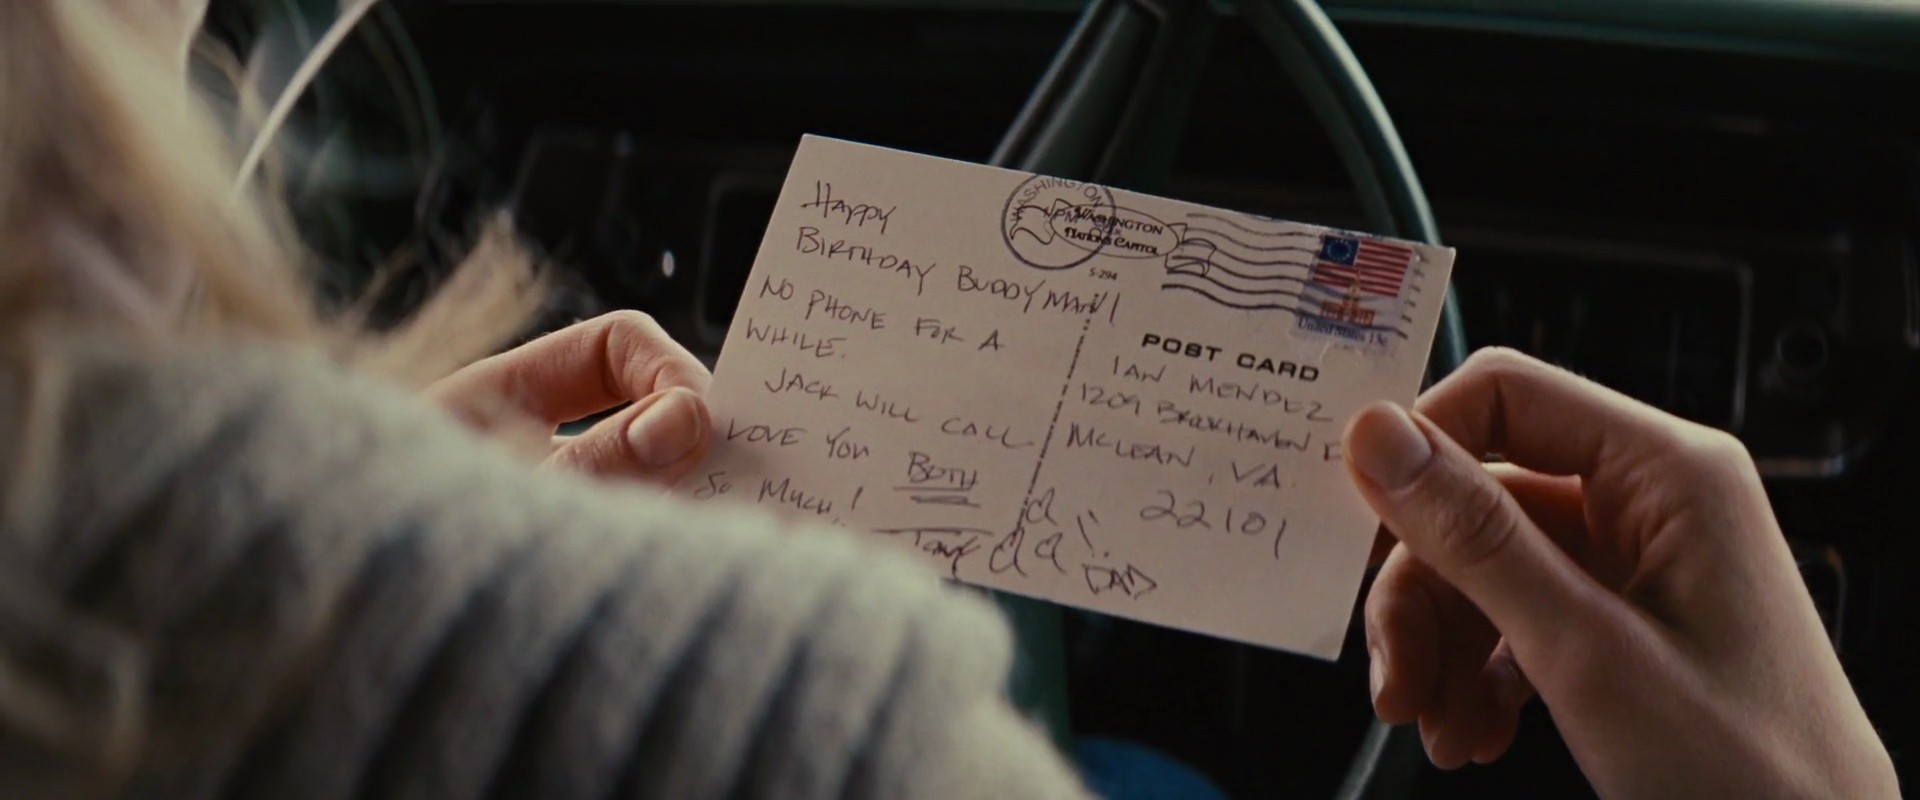 HAPPY
BIRTHDAY BUDDY MAN!
NO PHONE FOR A
WHILE.
JACK WILL CALL
LOVE YOU BOTH
SO MUCH!
DAD
WASHINGTON
WASHINGTON
NATION'S CAPITOL
S-294
United States 13c
POST CARD
IAN MENDEZ
1209 BROOKHAVEN D
MCLEAN, VA.
22101